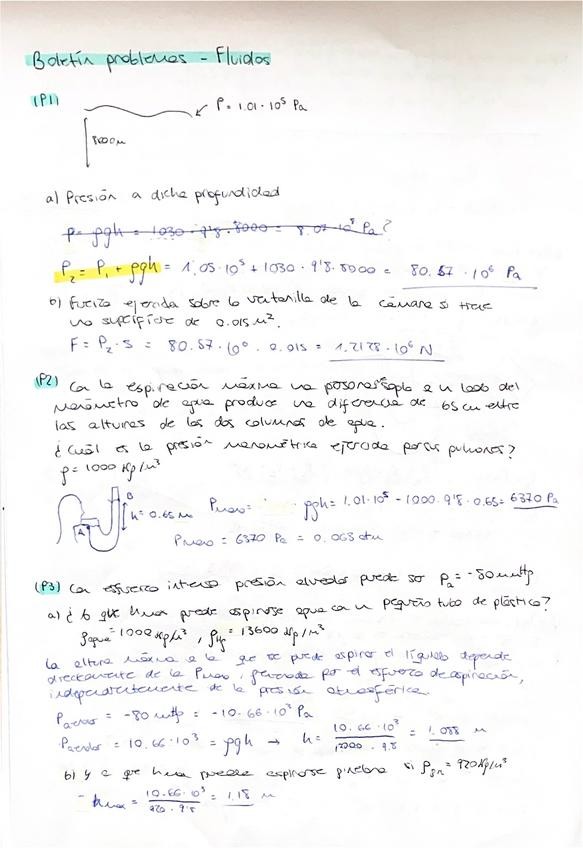 Boletín problemas - Fluidos
(P1)
P = 1.01 · 10⁵ Pa
8000m
a) Presión a dicha profundidad
P = ρgh = 1030 · 9'8 · 8000 = 8.07 · 10⁵ Pa?
P₂ = P₁ + ρgh = 1.05 · 10⁵ + 1030 · 9'8 · 8000 = 80.87 · 10⁶ Pa
b) Fuerza ejercida sobre la ventanilla de la cámara si tiene
una superficie de 0.015 m².
F = P₂ · S = 80.87 · 10⁶ · 0.015 = 1.2128 · 10⁶ N
(P2) Con la espiración máxima una persona sopla a un lado del
manómetro de agua produce una diferencia de 65 cm entre
las alturas de las dos columnas de agua.
¿Cuál es la presión manométrica ejercida por sus pulmones?
ρ = 1000 Kg/m³
B
A
h = 0.65 m
Pmano = ρgh = 1.01 · 10⁵ - 1000 · 9'8 · 0.65 = 6370 Pa
Pmano = 6370 Pa = 0.063 atm
(P3) Con esfuerzo intenso presión alveolar puede ser Pa = -80 mmHg
a) ¿A qué hmax puede aspirarse agua con un pequeño tubo de plástico?
ρagua = 1000 kg/m³, ρHg = 13600 Kg/m³
La altura máxima a la que se puede aspirar el líquido depende
directamente de la Pmano, generada por el esfuerzo de aspiración,
independientemente de la presión atmosférica.
Palveolar = -80 mmHg = -10.66 · 10³ Pa
Palveolar = 10.66 · 10³ = ρgh → h = 10.66 · 10³ / 1000 · 9.8 = 1.088 m
b) y a qué hmax puede aspirarse ginebra si ρgin = 920 Kg/m³
- hmax = 10.66 · 10³ / 920 · 9'8 = 1.18 m